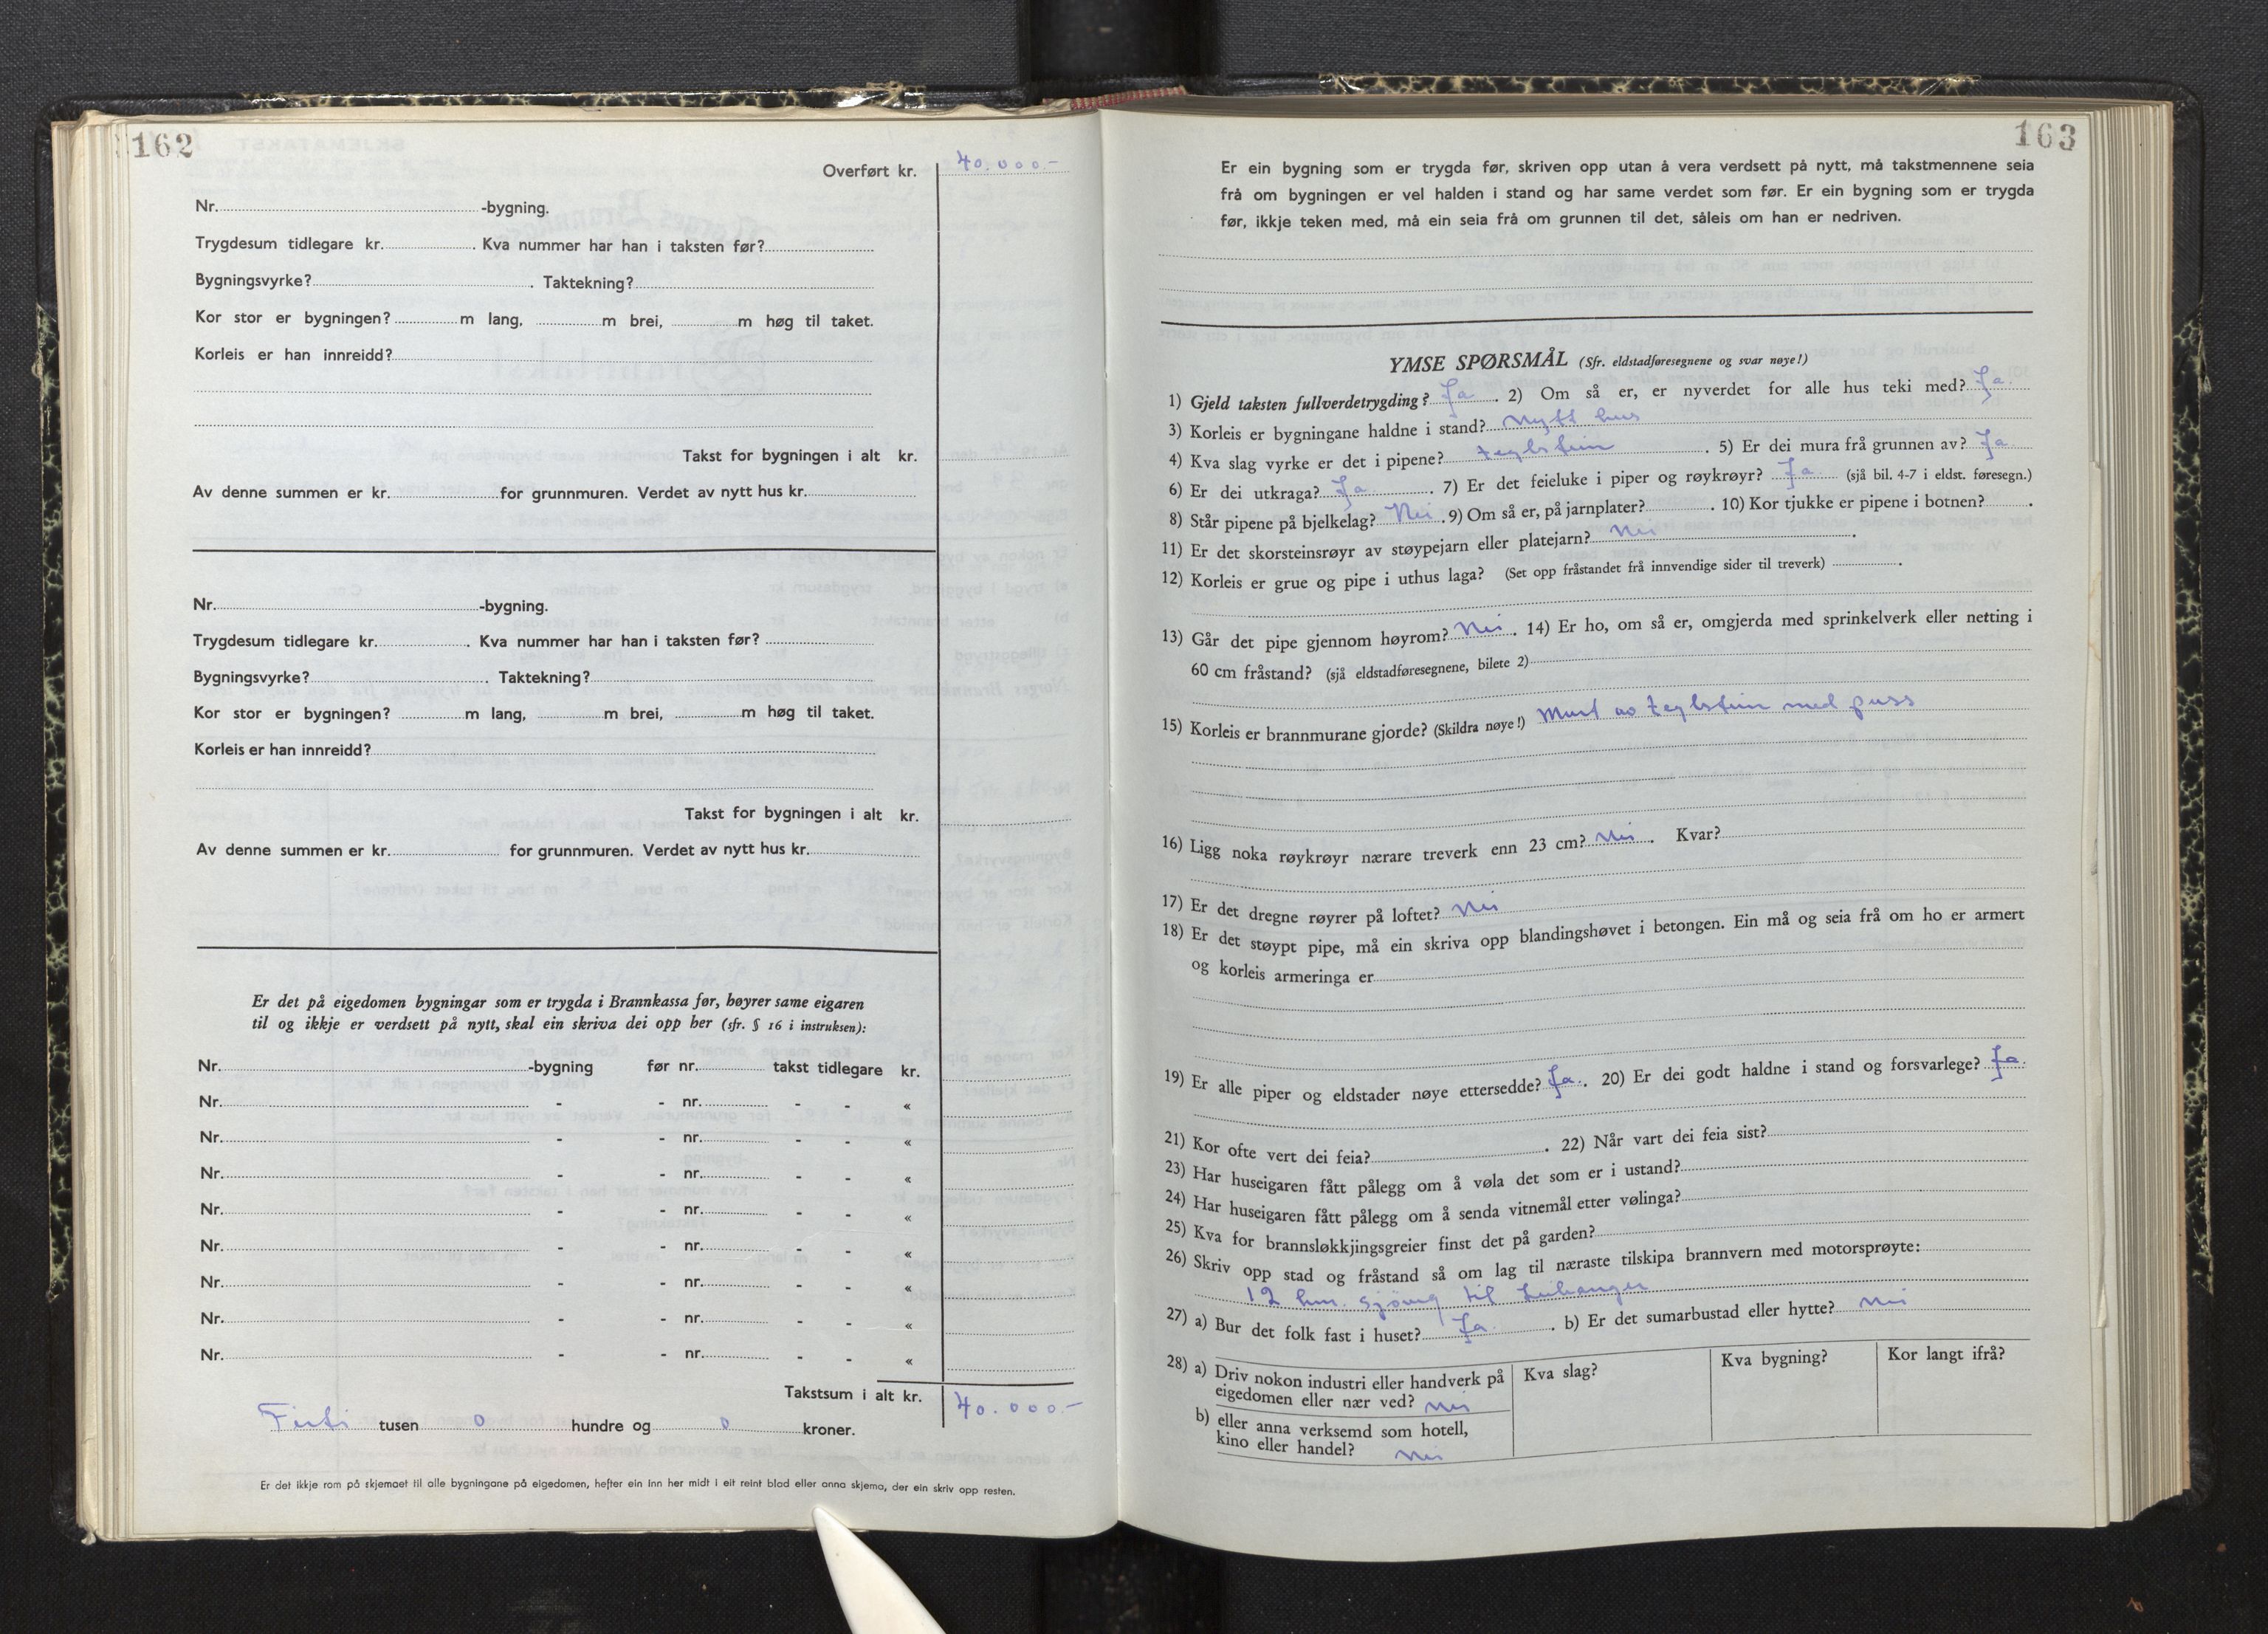 162
Overført kr. 40.000.-
Nr. -bygning.
Trygdesum tidlegare kr. . Kva nummer har han i taksten før?
Bygningsvyrke? . Taktekning?
Kor stor er bygningen? m lang, m brei, m høg til taket.
Korleis er han innreidd?
Takst for bygningen i alt kr.
Av denne summen er kr. for grunnmuren. Verdet av nytt hus kr.
Nr. -bygning.
Trygdesum tidlegare kr. . Kva nummer har han i taksten før?
Bygningsvyrke? . Taktekning?
Kor stor er bygningen? m lang, m brei, m høg til taket.
Korleis er han innreidd?
Takst for bygningen i alt kr.
Av denne summen er kr. for grunnmuren. Verdet av nytt hus kr.
Er det på eigedomen bygningar som er trygda i Brannkassa før, høyrer same eigaren
til og ikkje er verdsett på nytt, skal ein skriva dei opp her (sfr. § 16 i instruksen):
Nr. -bygning før nr. takst tidlegare kr.
Nr. - - nr. - - «
Nr. - - nr. - - «
Nr. - - nr. - - «
Nr. - - nr. - - «
Nr. - - nr. - - «
Nr. - - nr. - - «
Nr. - - nr. - - «
Nr. - - nr. - - «
Takstsum i alt kr. 40.000.-
Firti tusen 0 hundre og 0 kroner.
Er det ikkje rom på skjemaet til alle bygningane på eigedomen, hefter ein inn her midt i eit reint blad eller anna skjema, der ein skriv opp resten.
163
Er ein bygning som er trygda før, skriven opp utan å vera verdsett på nytt, må takstmennene seia
frå om bygningen er vel halden i stand og har same verdet som før. Er ein bygning som er trygda
før, ikkje teken med, må ein seia frå om grunnen til det, såleis om han er nedriven.
YMSE SPØRSMÅL (Sfr. eldstadføresegnene og svar nøye!)
1) Gjeld taksten fullverdetrygding? Ja . 2) Om så er, er nyverdet for alle hus teki med? Ja.
3) Korleis er bygningane haldne i stand? Nytt hus
4) Kva slag vyrke er det i pipene? teglstein . 5) Er dei mura frå grunnen av? Ja
6) Er dei utkraga? Ja . 7) Er det feieluke i piper og røykrøyr? Ja (sjå bil. 4-7 i eldst. føresegn.)
8) Står pipene på bjelkelag? Nei . 9) Om så er, på jarnplater? . 10) Kor tjukke er pipene i botnen? .
11) Er det skorsteinsrøyr av støypejarn eller platejarn? Nei .
12) Korleis er grue og pipe i uthus laga? (Set opp fråstandet frå innvendige sider til treverk) .
13) Går det pipe gjennom høyrom? Nei . 14) Er ho, om så er, omgjerda med sprinkelverk eller netting i
60 cm fråstand? (sjå eldstadføresegnene, bilete 2)
15) Korleis er brannmurane gjorde? (Skildra nøye!) Murt av teglstein med puss
16) Ligg noka røykrøyr nærare treverk enn 23 cm? Nei . Kvar?
17) Er det dregne røyrer på loftet? Nei
18) Er det støypt pipe, må ein skriva opp blandingshøvet i betongen. Ein må og seia frå om ho er armert
og korleis armeringa er
19) Er alle piper og eldstader nøye ettersedde? Ja . 20) Er dei godt haldne i stand og forsvarlege? Ja.
21) Kor ofte vert dei feia? . 22) Når vart dei feia sist?
23) Har huseigaren fått pålegg om å vøla det som er i ustand?
24) Har huseigaren fått pålegg om å senda vitnemål etter vølinga?
25) Kva for brannsløkkjingsgreier finst det på garden?
26) Skriv opp stad og fråstand så om lag til næraste tilskipa brannvern med motorsprøyte:
12 km. sjöveg til Leikanger
27) a) Bur det folk fast i huset? Ja . b) Er det sumarbustad eller hytte? Nei
28) a) Driv nokon industri eller handverk på
eigedomen eller nær ved? Nei
Kva slag?
Kva bygning?
Kor langt ifrå?
b) eller anna verksemd som hotell,
kino eller handel? Nei